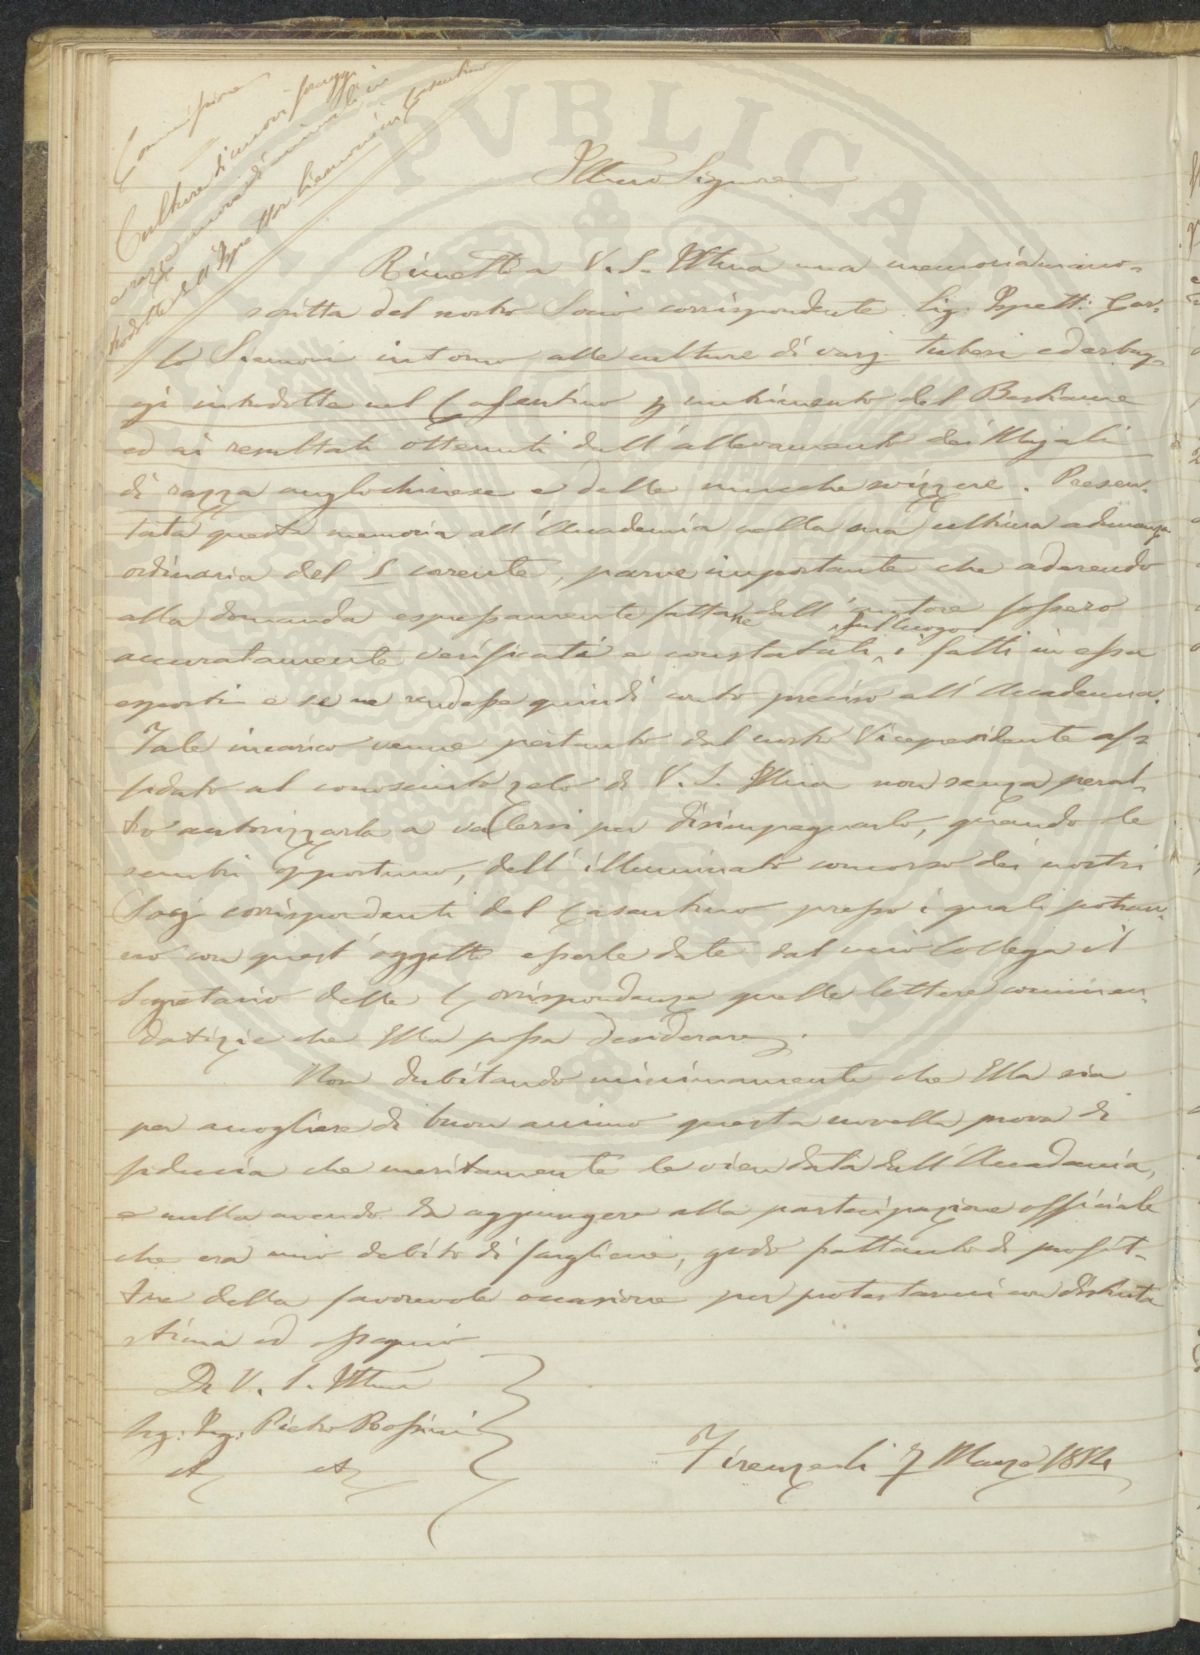 Commissione
Culture di nuovi foraggi
e razze nuove di animali in
trodotte dall'Ispettor Siemoni in Casentino
Illmo Signore
Rimetto a V. S. Illma una memoria mano-
scritta del nostro Socio corrispondente Sig: Ispett: Car-
lo Siemoni intorno alle culture di varj tuberi ed erbag-
gi introdotte nel Casentino p nutrimento del Bestiame
ed ai resultati ottenuti dall'allevamento dei Majali
di razza anglochinese e delle mucche svizzere. Presen-
tata questa memoria all'Accademia nella sua ultima adunanza
ordinaria del 5 corrente, parve importante che aderendo
alla domanda espressamente fattane dall'autore fossero
accuratamente verificati e constatati, sul luogo i fatti in essa
esposti e se ne rendesse quindi conto preciso all'Accademia.
Tale incarico venne pertanto dal nostro Vicepresidente af-
fidato al conosciuto zelo di V. S. Illma non senza peral-
tro autorizzarla a vallersi per disimpegnarlo, quando le
sembri opportuno, dell'illuminato concorso dei nostri
Socj corrispondenti del Casentino presso i quali potran-
no con quest'oggetto esserle date dal mio Collega il
Segretario delle Corrispondenze quelle lettere commen-
datizie che Ella possa desiderare.
Non dubitando minimamente che Ella sia
per accogliere di buon animo questa novella prova di
fiducia che meritamente le vien data dall'Accademia,
e nulla avendo da aggiungere alla partecipazione officiale
che era mio debito di fargliene, godo frattanto di profit-
tare della favorevole occasione per protestarmi con distinta
stima ed ossequio
Di V. S. Illma
Sig: Ing: Pietro Rossini
Firenze li 7 Marzo 1854
PVBLICA